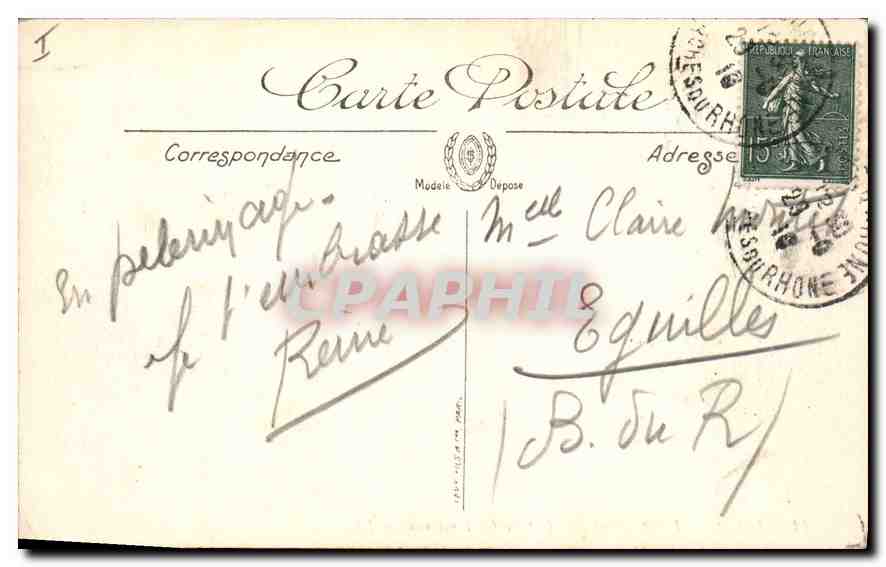 I
Carte Postale
Correspondance
Adresse
Modèle Déposé
REPUBLIQUE FRANÇAISE
15
BOUCHES DU RHONE
23
En pelerinage.
Je t'embrasse
Reine
Melle Claire
Eguilles
(B. du R)
CPAPHIL